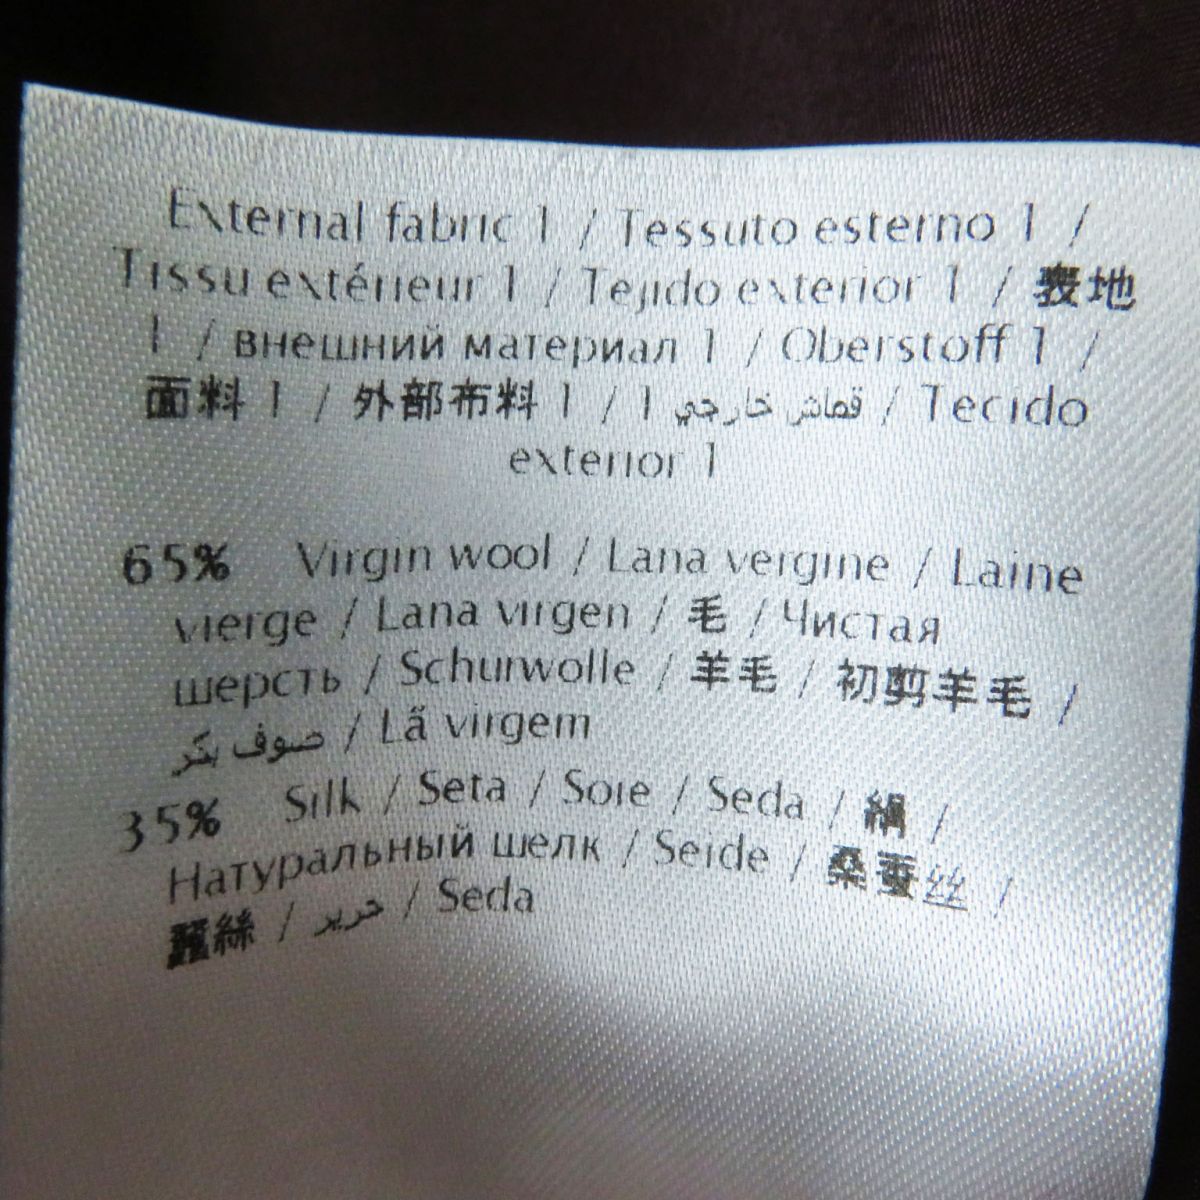 External fabric 1 / Tessuto esterno 1 /
Tissu extérieur 1 / Tejido exterior 1 / 表地
1 / внешний материал 1 / Oberstoff 1 /
面料 1 / 外部布料 1 / قماش خارجي 1 / Tecido
exterior 1
65% Virgin wool / Lana vergine / Laine
vierge / Lana virgen / 毛 / Чистая
шерсть / Schurwolle / 羊毛 / 初剪羊毛 /
صوف بكر / Lã virgem
35% Silk / Seta / Soie / Seda / 絹 /
Натуральный шелк / Seide / 桑蚕丝 /
蠶絲 / حرير / Seda